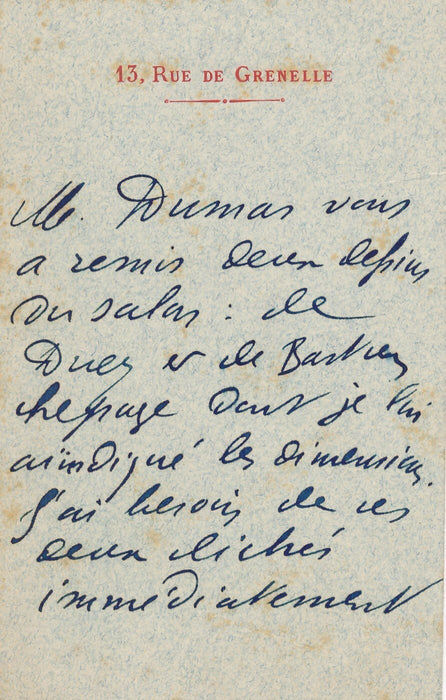 13, RUE DE GRENELLE
M. Dumas vous
a remis deux dessins
du salon : de
Duez et de Bastien
Lepage dont je lui
ai indiqué les dimensions.
J'ai besoin de ces
deux clichés
immédiatement